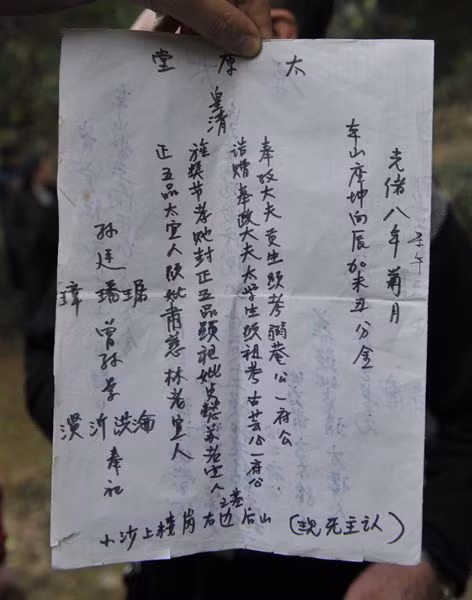 太原堂
光绪八年菊月
壬午
车山辰坤向辰加未丑分金
皇清
奉政大夫贡生显考弼菴公一府公
诰赠奉政大夫太学生显祖考古芸公一府公
旌奖节孝貤封正五品显祖妣 懿 老宜人
正五品太宜人显妣肃慈林老宜人
之墓
孙廷璠琚璋
曾孙 沂洪瀹
奉祀
小沙上桂岗右边后山(现无主认)